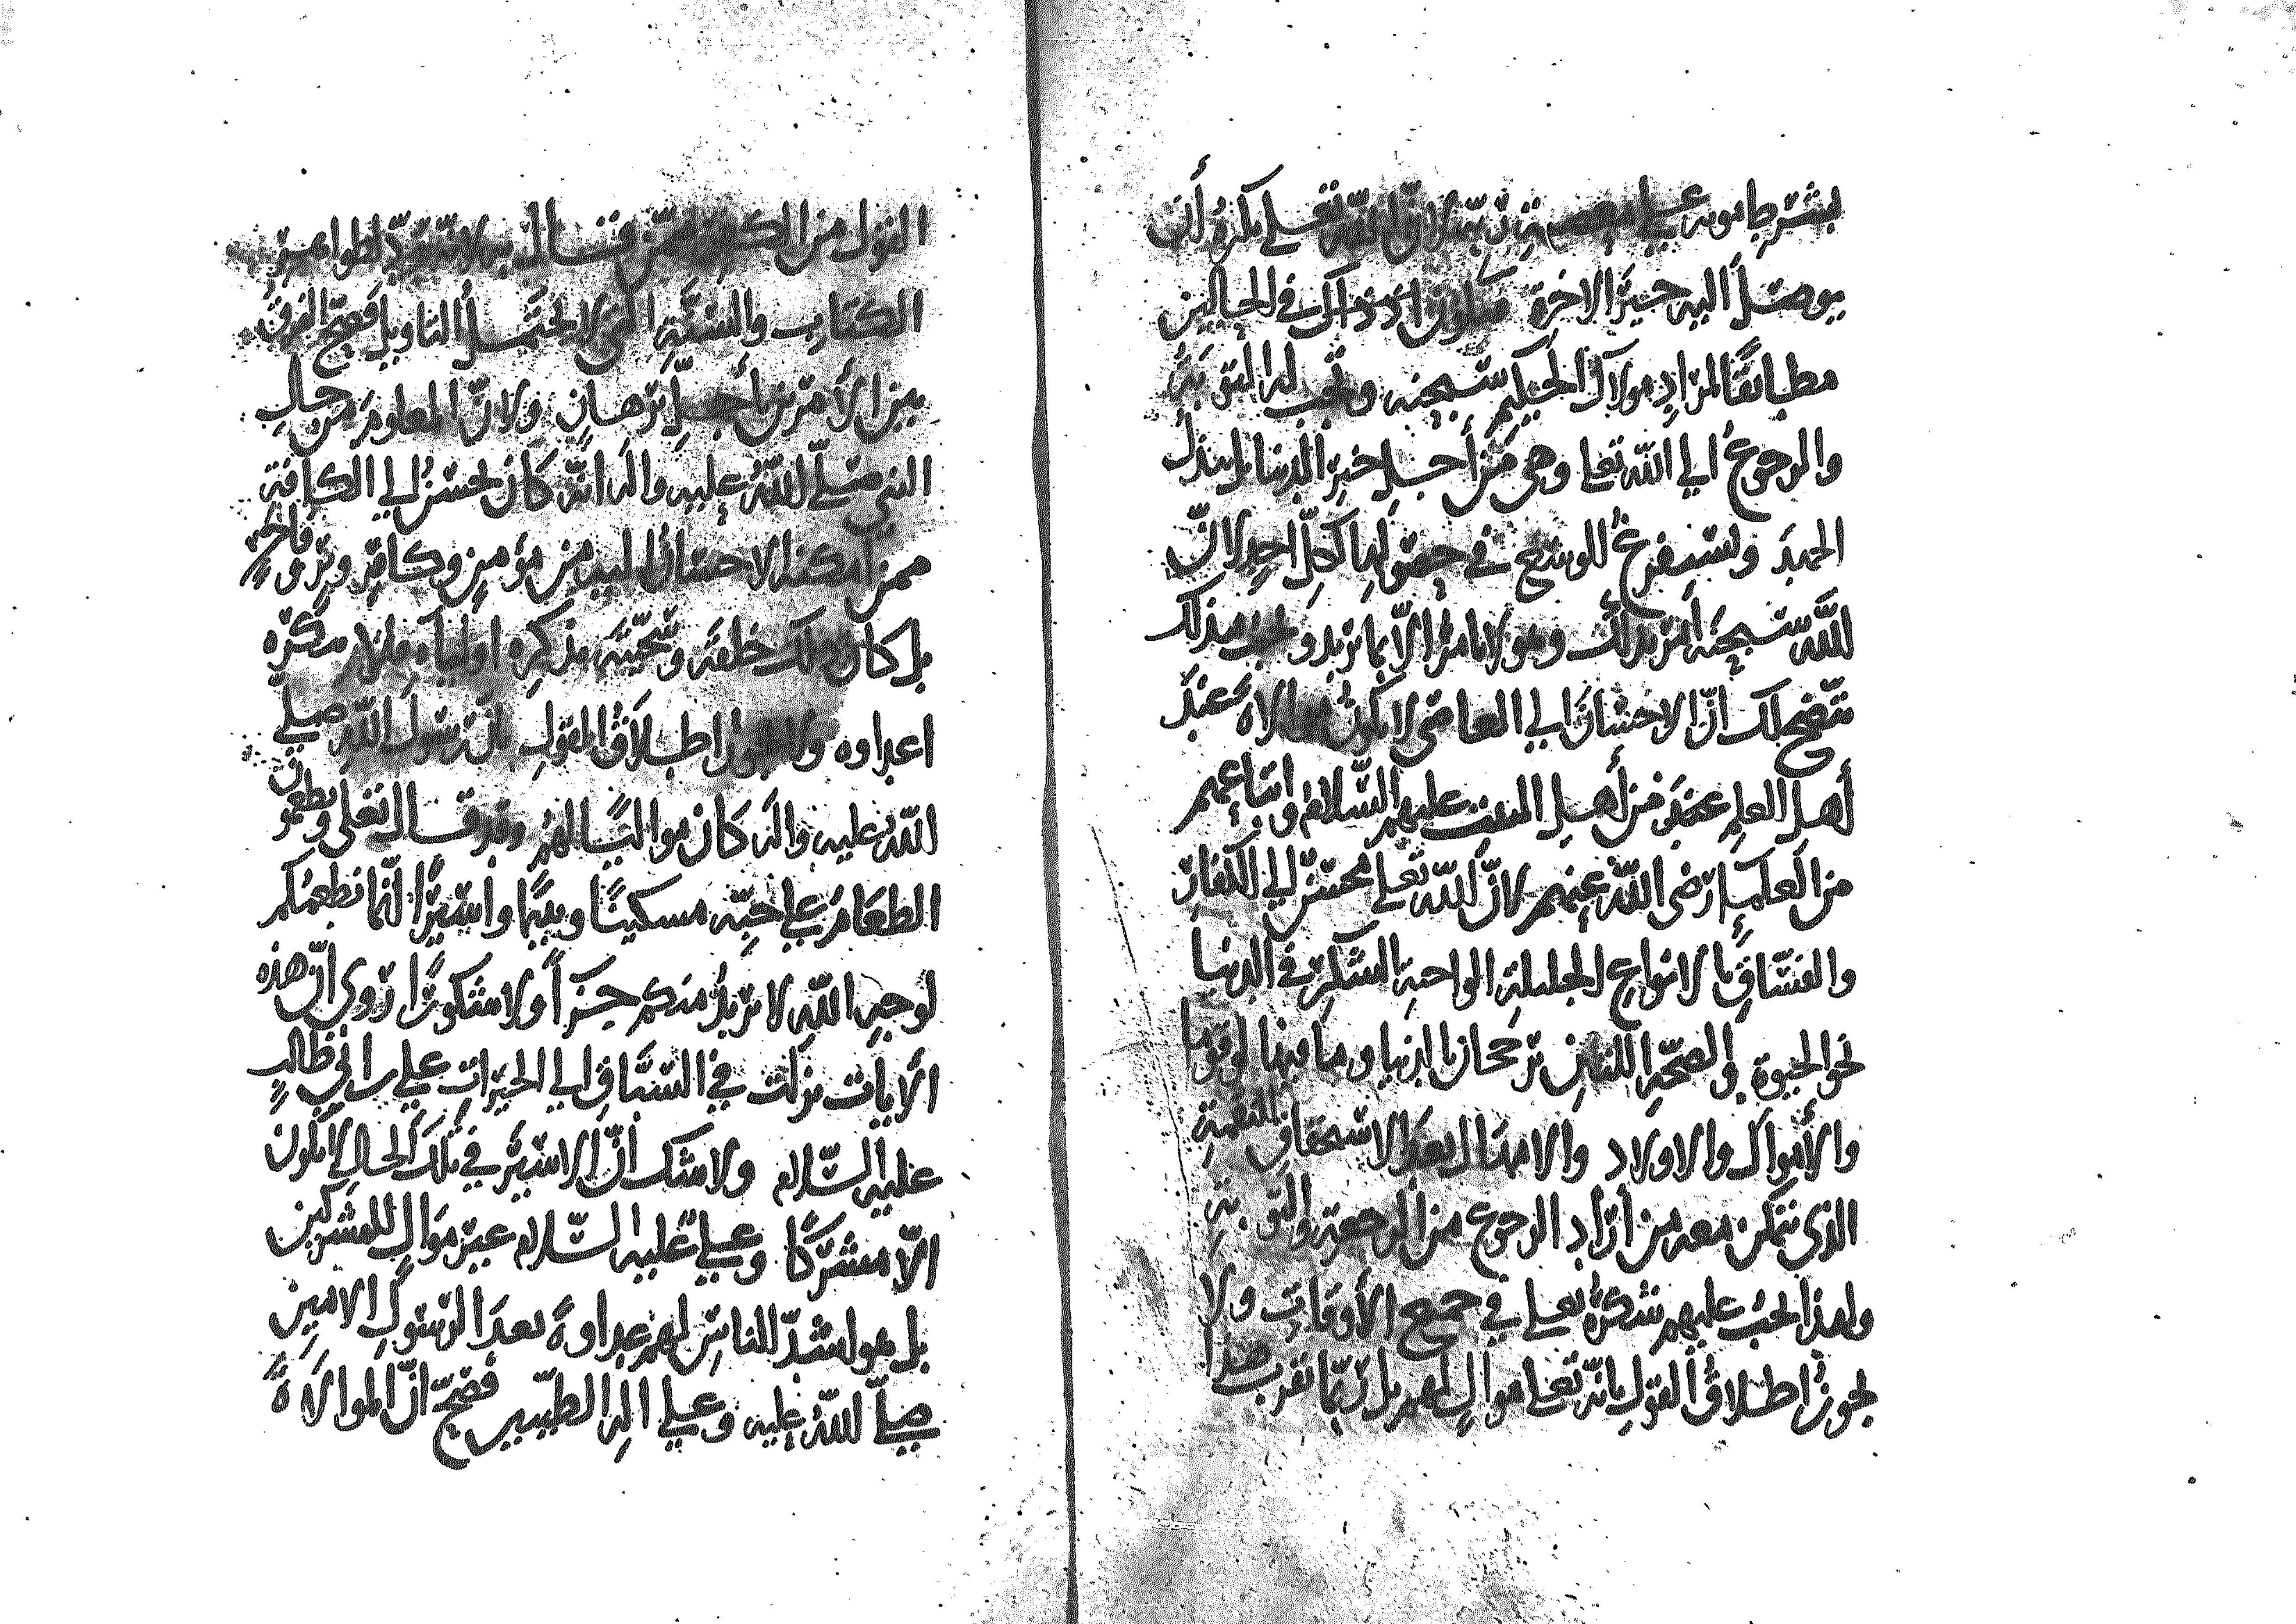 بشرط موته على معصية ربه لان الله تعلى يكره أن
يوصل اليه خير الاخرة فتكون إذ ذاك في الحالين
مطابقًا لمراد مولاك الحكيم سبحنه وتجب له التوبة
والرجوع الى الله تعلى وهي من أجل خير الدنيا بل ببذل
الجهد ويستفرغ الوسع في حصولها لكل احد لان
الله سبحنه أمر بذلك وهو لا يأمر الا بما يريد
يتضح لك انّ الاحسان الى العاصي لا يكون موالاه عند
أهل العلم عنده من أهل البيت عليهم السّلام واتباعهم
من العلماء رضى الله عنهم لانّ الله تعلى محسن الى الكفار
والفسّاق بالانواع الجليلة الواجبة الشكر في الدنيا
نحو الحيوة والصحّة اللتين ترجحان بالدنيا وما فيها لو قوبا
والأموال والاولاد والامهال بعد الاستحقاق للنقمة
الذي يتمكن معه من أراد الرجوع من الرجعة والتوبة
ولهذا يجب عليهم شكره تعلى في جميع الأوقات ولا
يجوز اطلاق القول بانّه تعلى موالٍ لهم بل ربّما يقرب هذا
القول من الكفر ممن قال به لانه يردّ لظواهر
الكتاب والسنّة التى لا تحتمل التاويل فصحّ الفرق
بين الأمرين بأجلّ برهان ولانّ المعلوم من حال
النبي صلّى الله عليه واله انّه كان يحسن الى الكافة
ممن أمكنه الاحسان اليه من مؤمن وكافر وبرّ وفاجر
بل كان ذلك خلقه وسجيّته بذكره اولياه
اعداوه ولا يجوز اطلاق القول بان رسول الله صلى
الله عليه واله كان مواليًا لهم وقد قال تعلى ويطعمون
الطعام على حبّه مسكينًا ويتيمًا واسيرًا انّما نطعمكم
لوجه الله لا نريد منكم جزآً ولا شكورًا روى انّ هذه
الأيات نزلت في السبّاق الى الخيرات على بن ابي طالب
عليه السّلام ولا شك انّ الاسير في تلك الحال لا يكون
الّا مشركًا وعلى عليه السّلام غير موال للمشركين
بل هو اشدّ الناس لهم عداوة بعد الرسول الامين
صلّى الله عليه وعلى اله الطيبين فصحّ انّ الموالاة